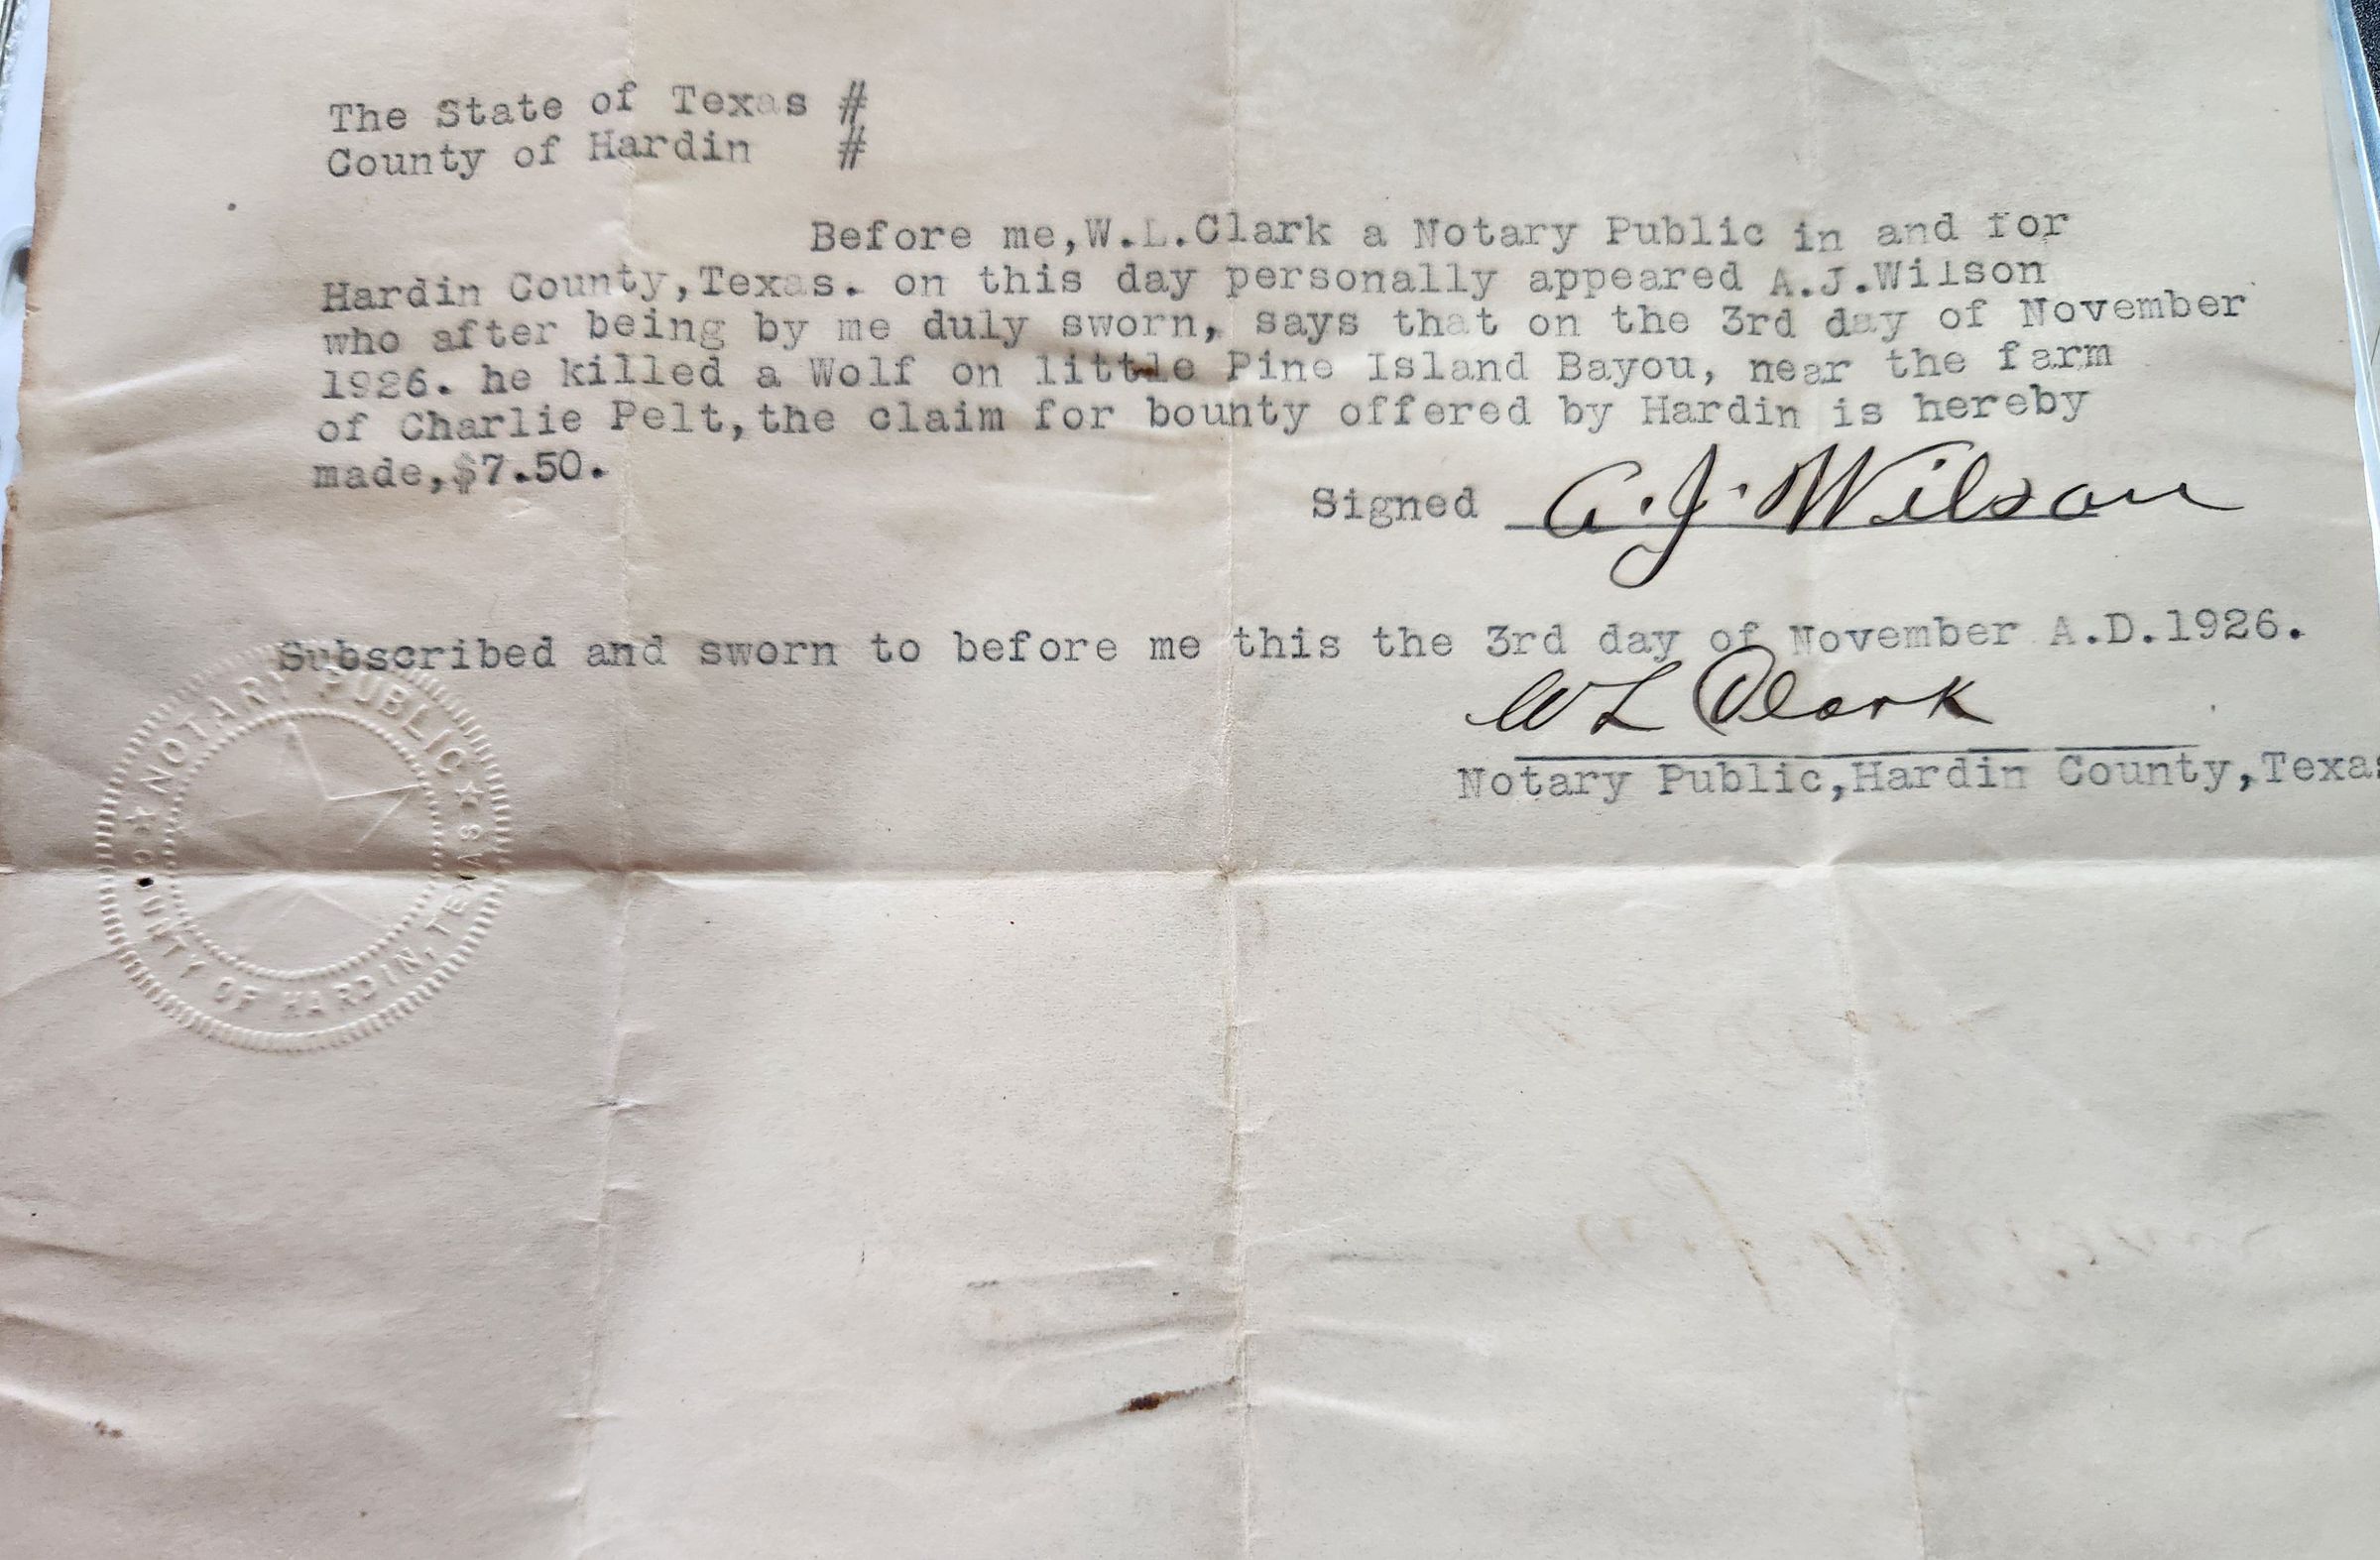 The State of Texas #
County of Hardin #
Before me,W.L.Clark a Notary Public in and for
Hardin County,Texas. on this day personally appeared A.J.Wilson
who after being by me duly sworn, says that on the 3rd day of November
1926. he killed a Wolf on little Pine Island Bayou, near the farm
of Charlie Pelt,the claim for bounty offered by Hardin is hereby
made,$7.50.
Signed A.J. Wilson
Subscribed and sworn to before me this the 3rd day of November A.D.1926.
W L Clark
Notary Public,Hardin County,Texas
NOTARY PUBLIC
COUNTY OF HARDIN, TEXAS